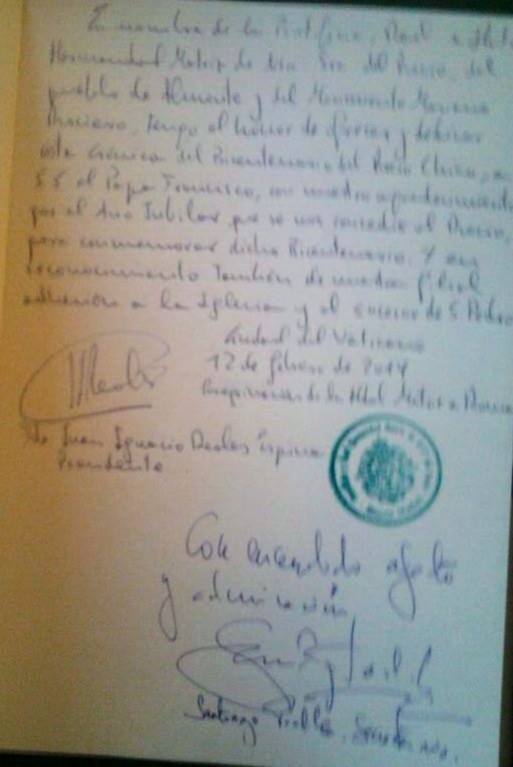 En nombre de la Pontificia, Real e Ilustre
Hermandad Matriz de Ntra. Sra. del Rocío, del
pueblo de Almonte y del Movimiento Mariano
Rociero, tengo el honor de ofrecer y dedicar
esta Crónica del Bicentenario del Rocío Chico, a
S.S. el Papa Francisco, con nuestro agradecimiento
por el Año Jubilar que se nos concedió al Rocío,
para conmemorar dicho Bicentenario. Y en
reconocimiento también de nuestra filial
adhesión a la Iglesia y al sucesor de S. Pedro
Ciudad del Vaticano
12 de febrero de 2014
de la Hdad Matriz
Juan Ignacio Reales Espina
Presidente
Con encendido afecto
y admiración
Santiago Padilla, Secretario.